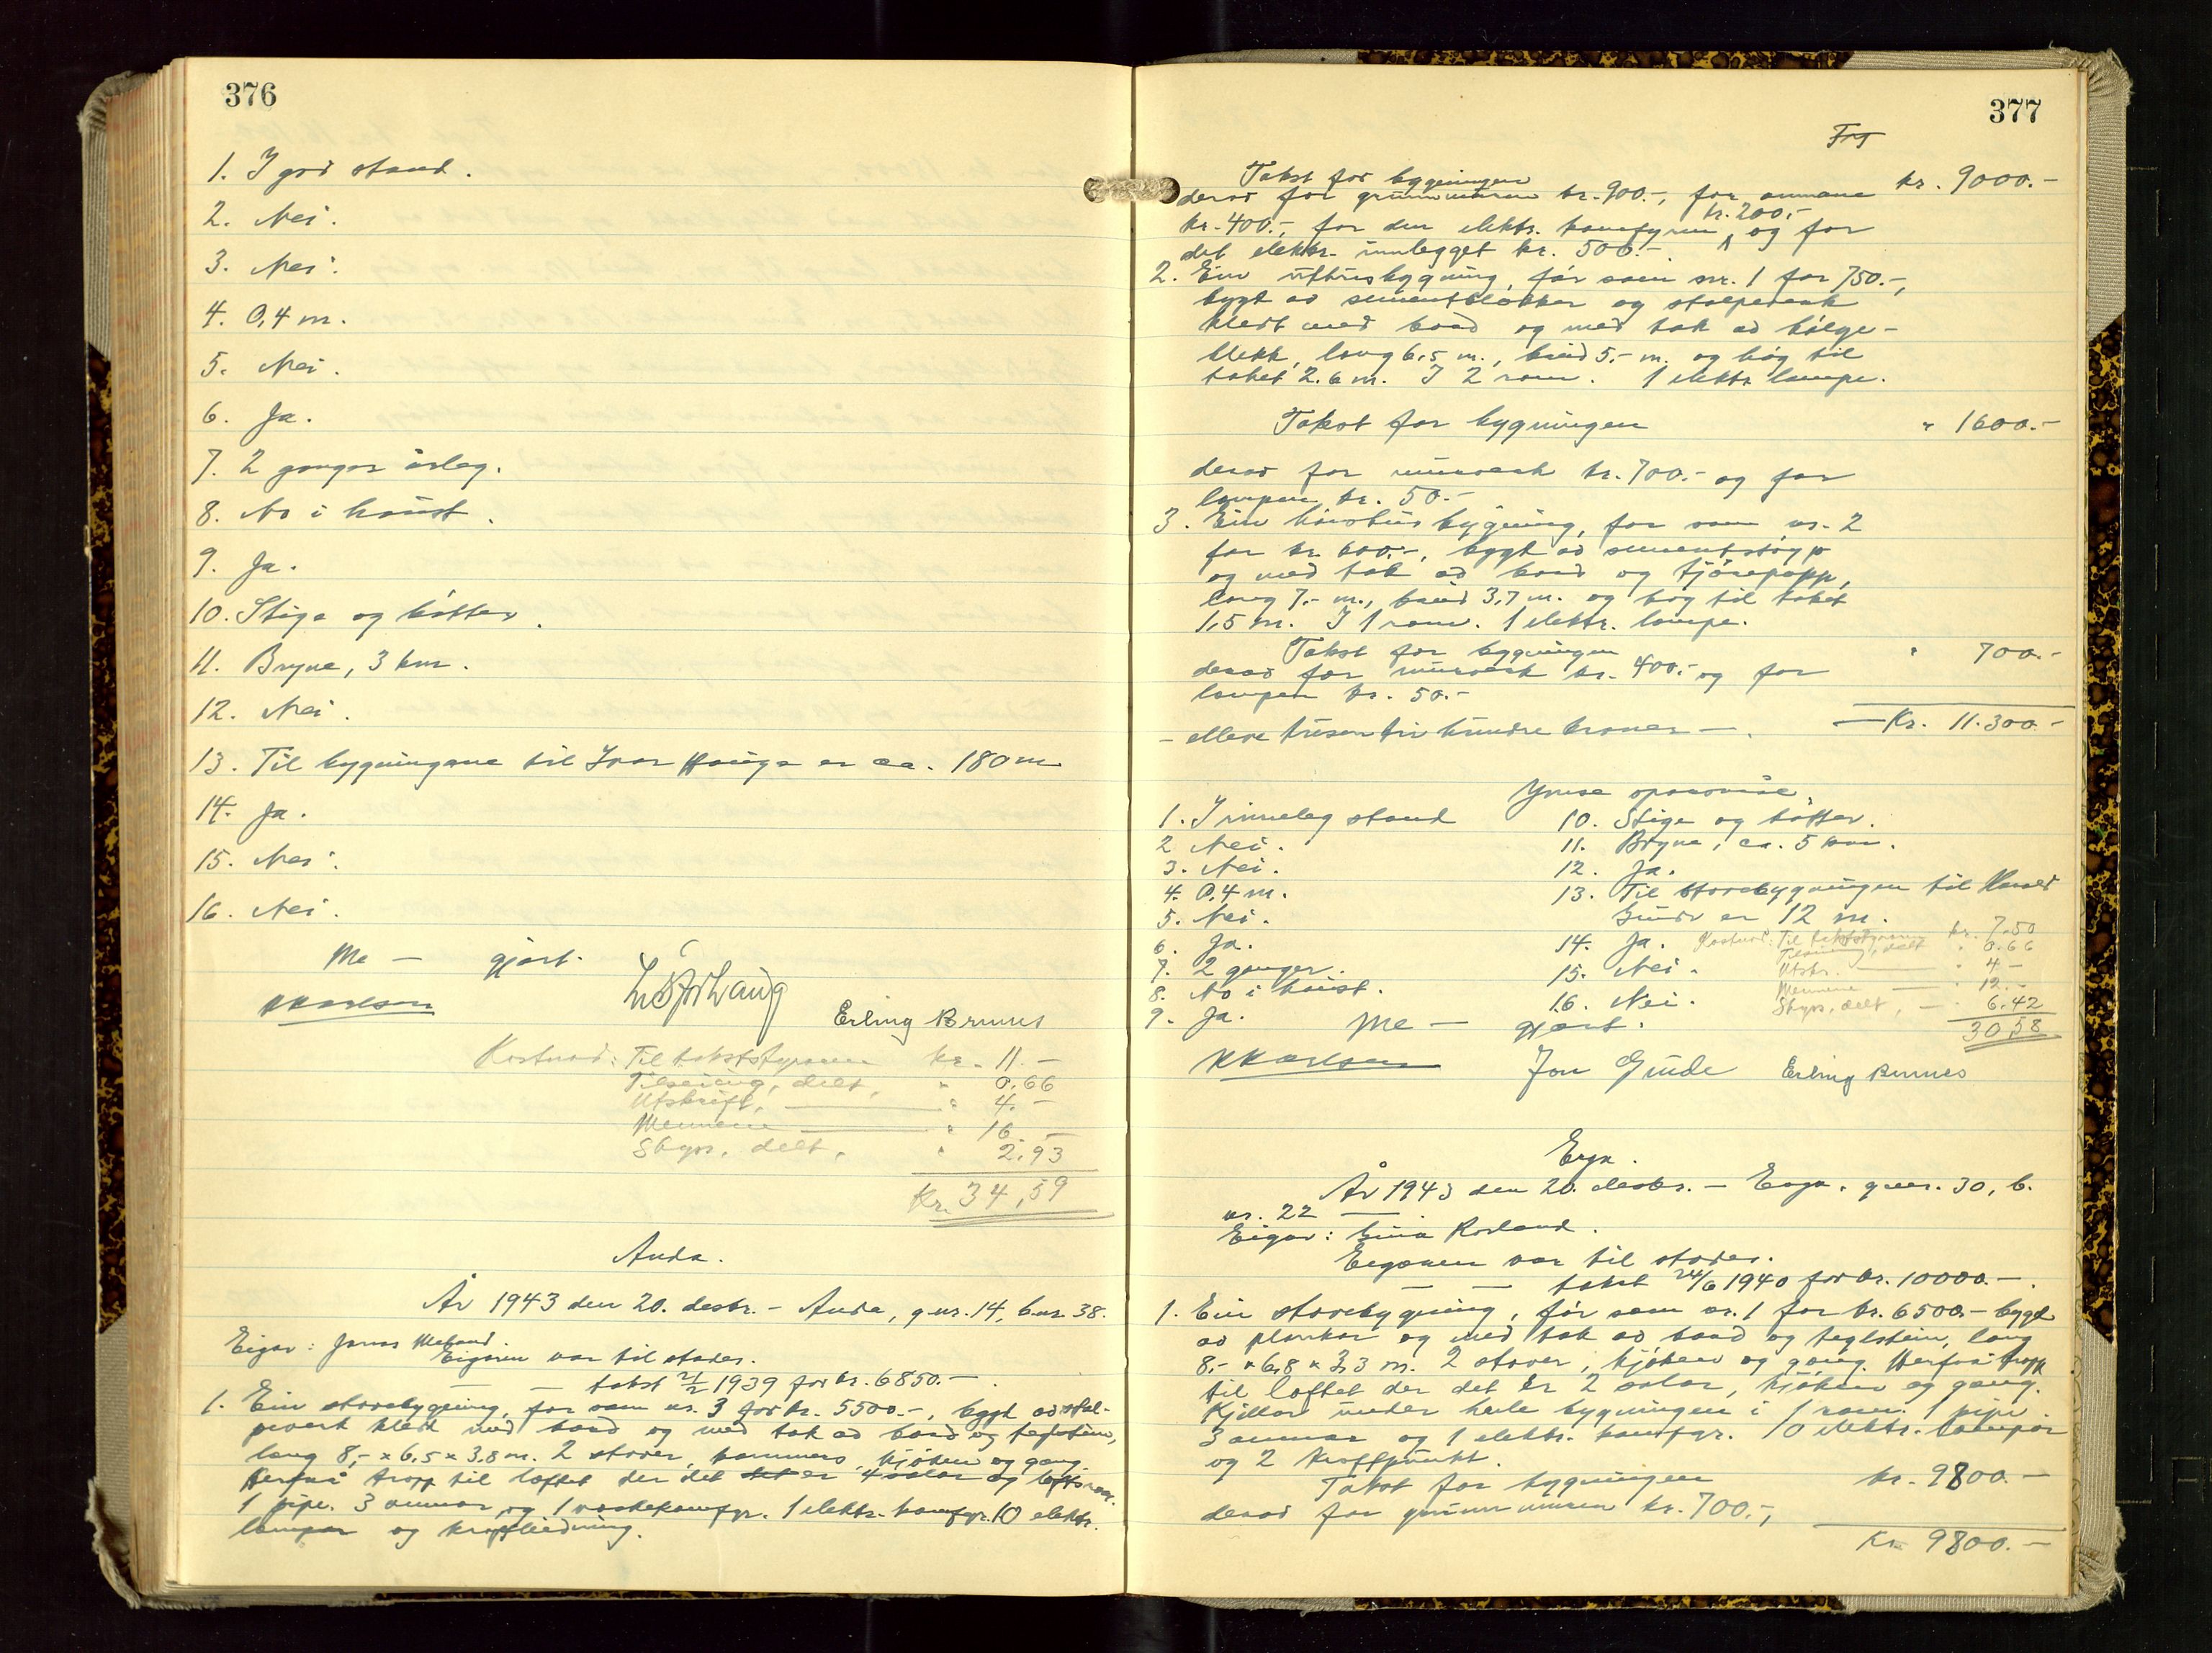 376
1. I god stand.
2. Nei.
3. Nei.
4. 0,4 m.
5. Nei.
6. Ja.
7. 2 gongor årleg.
8. No i haust.
9. Ja.
10. Stige og bøtter.
11. Bryne, 3 km.
12. Nei.
13. Til bygningane til Ivar Hauge er ca. 180 m
14. Ja.
15. Nei.
16. Nei.
Me — gjort.
KKarlsen Erling Brunes
Kostnad: Til takststyraren kr. 11.-
Tilseiing, delt, " 0.66
Utskrift, — " 4.-
Mennene — " 16.-
Skyss, delt, " 2.93
Kr. 34,59
Anda.
År 1943 den 20. desbr. - Anda, g.nr. 14, b.nr. 38.
Eigar: Jonas
Eigaren var til stades.
— — takst 2/2 1939 for kr. 6850.-
1. Ein stovebygning, før som nr. 3 for kr. 5500.-, bygt av stol-
peverk kledt med bord og med tak av bord og teglstein,
lang 8,- × 6,5 × 3,8 m. 2 stover, kammers, kjøken og gang.
Herfrå tropp til loftet der det er 4 salar og loftsrom.
1 pipe. 3 omnar og 1 vaskekomfyr. 1 elektr. komfyr. 10 elektr.
lampor og kraftleidning.
377
Frt
Takst for bygningen kr. 9000.-
derav for grunnmuren kr. 900.-, for omnane
kr. 400.-, for den elektr. komfyren kr. 200,- og for
det elektr. innlegget kr. 500.-.
2. Ein uthusbygning, før som nr. 1 for 750.-,
bygt av sementblokker og stolpeverk
kledt med bord og med tak av bølge-
blekk, lang 6,5 m., breid 5,- m. og høg til
taket 2.6 m. I 2 rom. 1 elektr lampe.
Takst for bygningen " 1600.-
derav for murverk kr. 700.- og for
lampen kr. 50.-
3. Ein hønehusbygning, før som nr. 2
for kr. 600.-, bygt av sementstøyp
og med tak av bord og tjørepapp,
lang 7,- m., breid 3,7 m. og høg til taket
1,5 m. I 1 rom. 1 elektr. lampe.
Takst for bygningen " 700.-
derav for murverk kr. 400.- og for
lampen kr. 50.-
- elleve tusen tri hundre kroner -. — Kr. 11.300.-
Ymse spørsmål.
1. I rimeleg stand
2 Nei.
3. Nei.
4. 0,4 m.
5. Nei.
6. Ja.
7. 2 gonger.
8. No i haust.
9. Ja.
10. Stige og bøtter.
11. Bryne, ca. 5 km.
12. Ja.
13. Til stovebygningen til Harald
er 12 m.
14. Ja.
15. Nei.
16. Nei.
Kostnad: Til takststyraren kr. 7.50
Tilseiing, delt " 0.66
Utskr. — " 4 -
Mennene — " 12.-
Skyss, delt, — " 6.42
30,58
Me — gjort.
KKarlsen Jon Gjude Erling Brunes
Erga.
År 1943 den 20. desbr. - Erga, g.nr. 30, b.
nr. 22 —
Eigar:
Eigaren var til stades.
— — takst 24/6 1940 for kr. 10000.-.
1. Ein stovebygning, før som nr. 1 for kr. 6500.- bygd
av plankar og med tak av bord og teglstein, lang
8,- × 6,8 × 3,3 m. 2 stover, kjøken og gang. Herfrå tropp
til loftet der det er 2 salar, kjøken og gang.
Kjellar under heile bygningen i 1 rom. 1 pipe.
3 omnar og 1 elektr. komfyr. 10 elektr. lampor
og 2 kraftpunkt.
Takst for bygningen kr. 9800.-
derav for grunnmuren kr. 700,-,
Kr. 9800.-